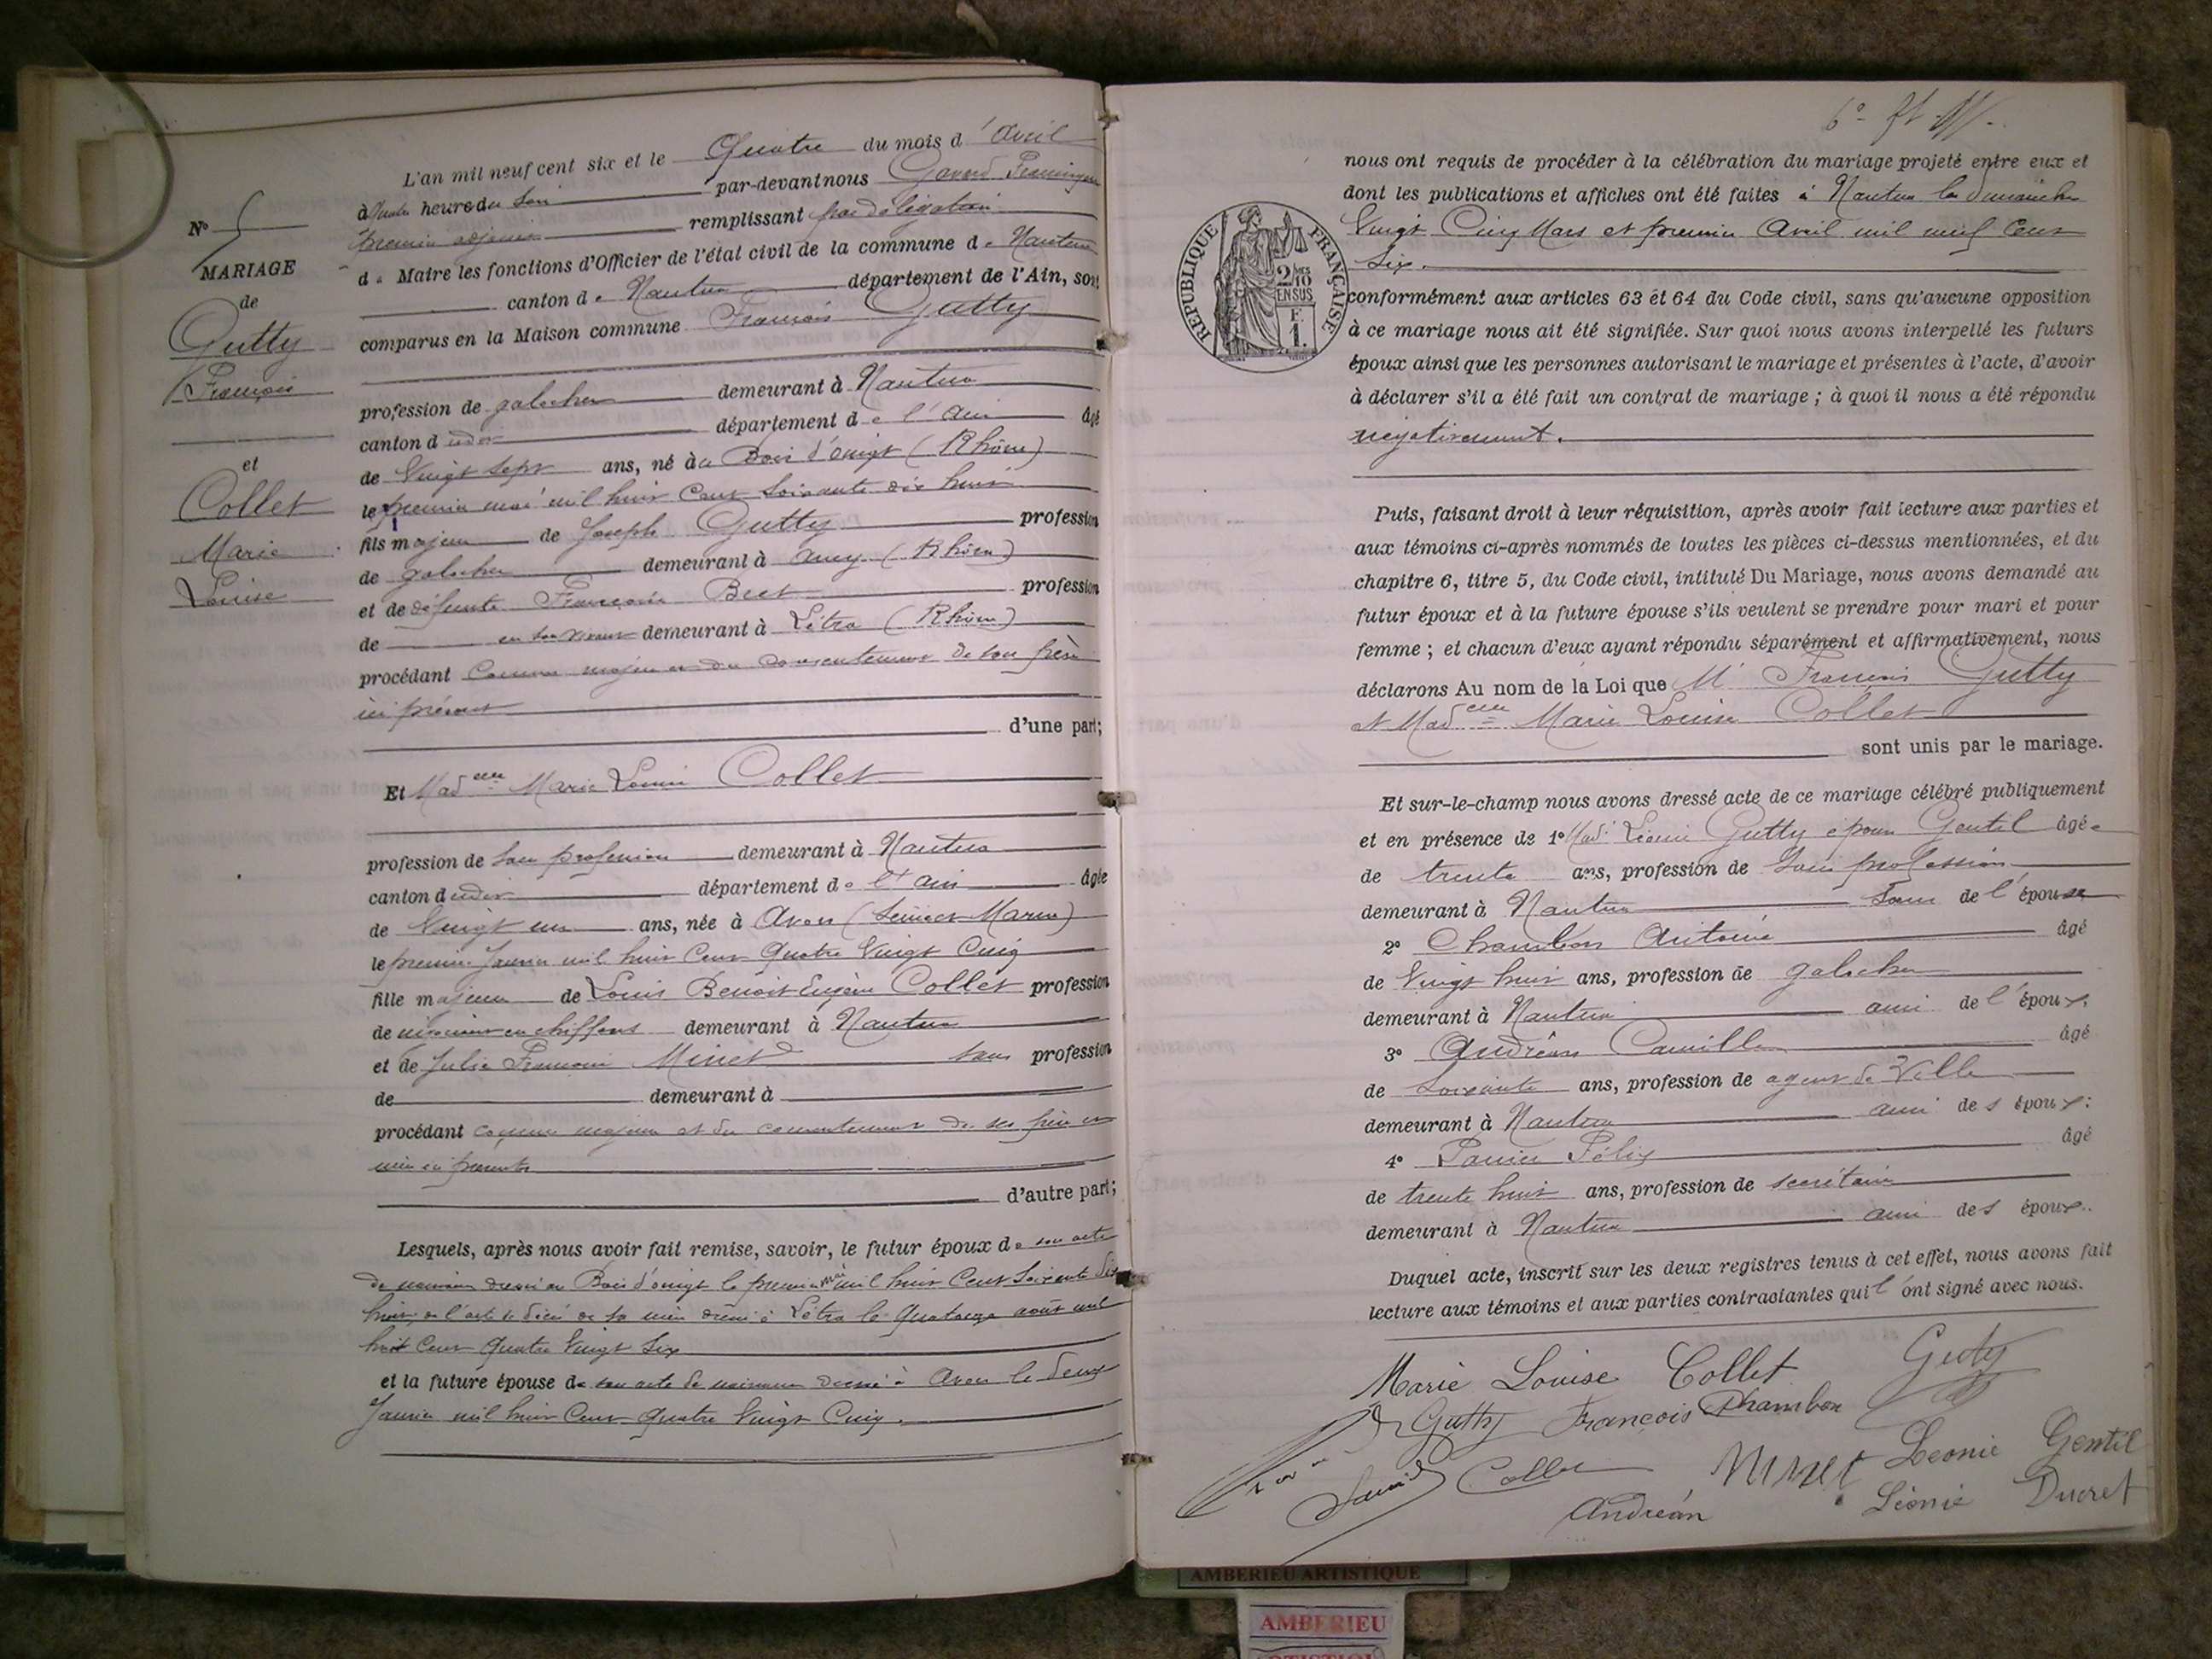 N° 5
MARIAGE
de
Gutty
François
et
Collet
Marie
Louise
L'an mil neuf cent six et le Quatre du mois d'Avril
à quatre heure du soir par-devant nous
premier adjoint remplissant par délégation
d. Maire les fonctions d'Officier de l'état civil de la commune de Nantua
canton de Nantua département de l'Ain, sont
comparus en la Maison commune François Gutty
profession de galocher demeurant à Nantua
canton d département de l'Ain âgé
de Vingt sept ans, né au Bois d'Oingt (Rhône)
le premier mai mil huit Cent Soixante dix huit
fils majeur de Joseph Gutty profession
de galocher demeurant à (Rhône)
et de défunte Françoise profession
de en son vivant demeurant à Létra (Rhône)
procédant Comme majeur et du consentement de son père
ici présent
d'une part;
Et Mad elle Marie Louise Collet
profession de sans profession demeurant à Nantua
canton d département de l'Ain âgée
de Vingt un ans, née à Avon (Seine et Marne)
le premier Janvier mil huit Cent Quatre Vingt Cinq
fille majeure de Louis Benoit Eugène Collet profession
de en chiffons demeurant à Nantua
et de Julie Minet sans profession
de demeurant à
procédant comme majeure et du consentement de ses père et
mère ici présents
d'autre part;
Lesquels, après nous avoir fait remise, savoir, le futur époux de son acte
de naissance dressé au Bois d'Oingt le premier mai mil huit Cent Soixante dix
huit, de l'acte de décès de sa mère dressé à Létra le Quatorze août mil
huit Cent Quatre Vingt Six
et la future épouse de son acte de naissance dressé à Avon le deux
Janvier mil huit Cent quatre Vingt Cinq.
nous ont requis de procéder à la célébration du mariage projeté entre eux et
dont les publications et affiches ont été faites à Nantua les dimanches
Vingt Cinq Mars et premier Avril mil neuf Cent
Six.
RÉPUBLIQUE FRANÇAISE
2/10
EN SUS
F.
1.
conformément aux articles 63 et 64 du Code civil, sans qu'aucune opposition
à ce mariage nous ait été signifiée. Sur quoi nous avons interpellé les futurs
époux ainsi que les personnes autorisant le mariage et présentes à l'acte, d'avoir
à déclarer s'il a été fait un contrat de mariage ; à quoi il nous a été répondu
négativement.
Puis, faisant droit à leur réquisition, après avoir fait lecture aux parties et
aux témoins ci-après nommés de toutes les pièces ci-dessus mentionnées, et du
chapitre 6, titre 5, du Code civil, intitulé Du Mariage, nous avons demandé au
futur époux et à la future épouse s'ils veulent se prendre pour mari et pour
femme ; et chacun d'eux ayant répondu séparément et affirmativement, nous
déclarons Au nom de la Loi que M François Gutty
et Mad elle Marie Louise Collet
sont unis par le mariage.
Et sur-le-champ nous avons dressé acte de ce mariage célébré publiquement
et en présence de 1° Mad. Léonie Gutty épouse Gentil âgée
de trente ans, profession de sans profession
demeurant à Nantua de l'époux
2° Chambon Antoine âgé
de Vingt huit ans, profession de galocher
demeurant à Nantua ami de l'époux.
3° Andréan Camille âgé
de Soixante ans, profession de agent de Ville
demeurant à Nantua ami des époux:
4° Félix âgé
de trente huit ans, profession de secrétaire
demeurant à Nantua ami des époux.
Duquel acte, inscrit sur les deux registres tenus à cet effet, nous avons fait
lecture aux témoins et aux parties contractantes qui l'ont signé avec nous.
Marie Louise Collet Guty
Gutty François Chambon
Collet Minet Leonie Gentil
Andréan Léonie Ducret
AMBERIEU ARTISTIQUE
AMBERIEU
ARTISTIQUE